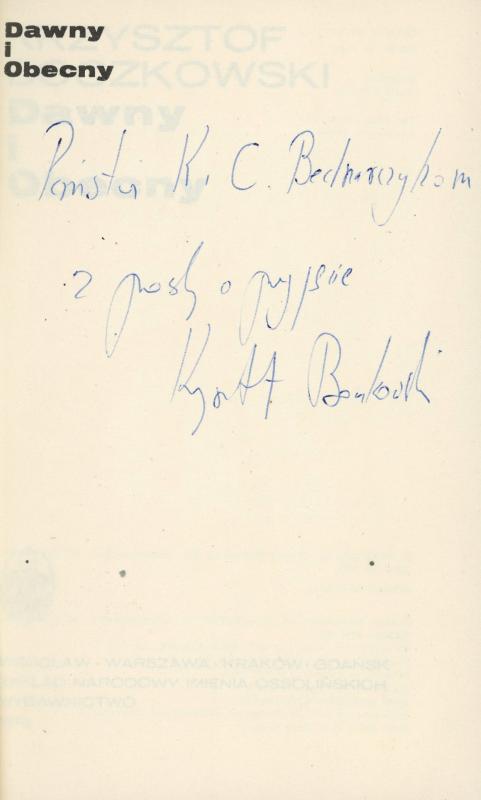 Dawny
i
Obecny
KRZYSZTOF
BOCZKOWSKI
Dawny
i
Obecny
Państwu K. i C. Bednarczykom
z prośbą o przyjęcie
Krzysztof Boczkowski
WROCŁAW · WARSZAWA · KRAKÓW · GDAŃSK
ZAKŁAD NARODOWY IMIENIA OSSOLIŃSKICH
WYDAWNICTWO